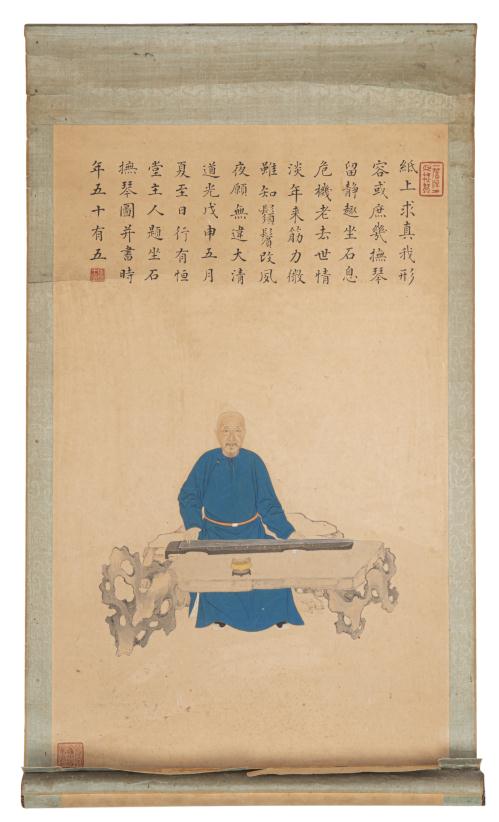 紙上求真我形
容或庶幾撫琴
留靜趣坐石息
危機老去世情
淡年來筋力微
雖知鬚鬢改夙
夜願無違大清
道光戊申五月
夏至日行有恒
堂主人題坐石
撫琴圖并書時
年五十有五